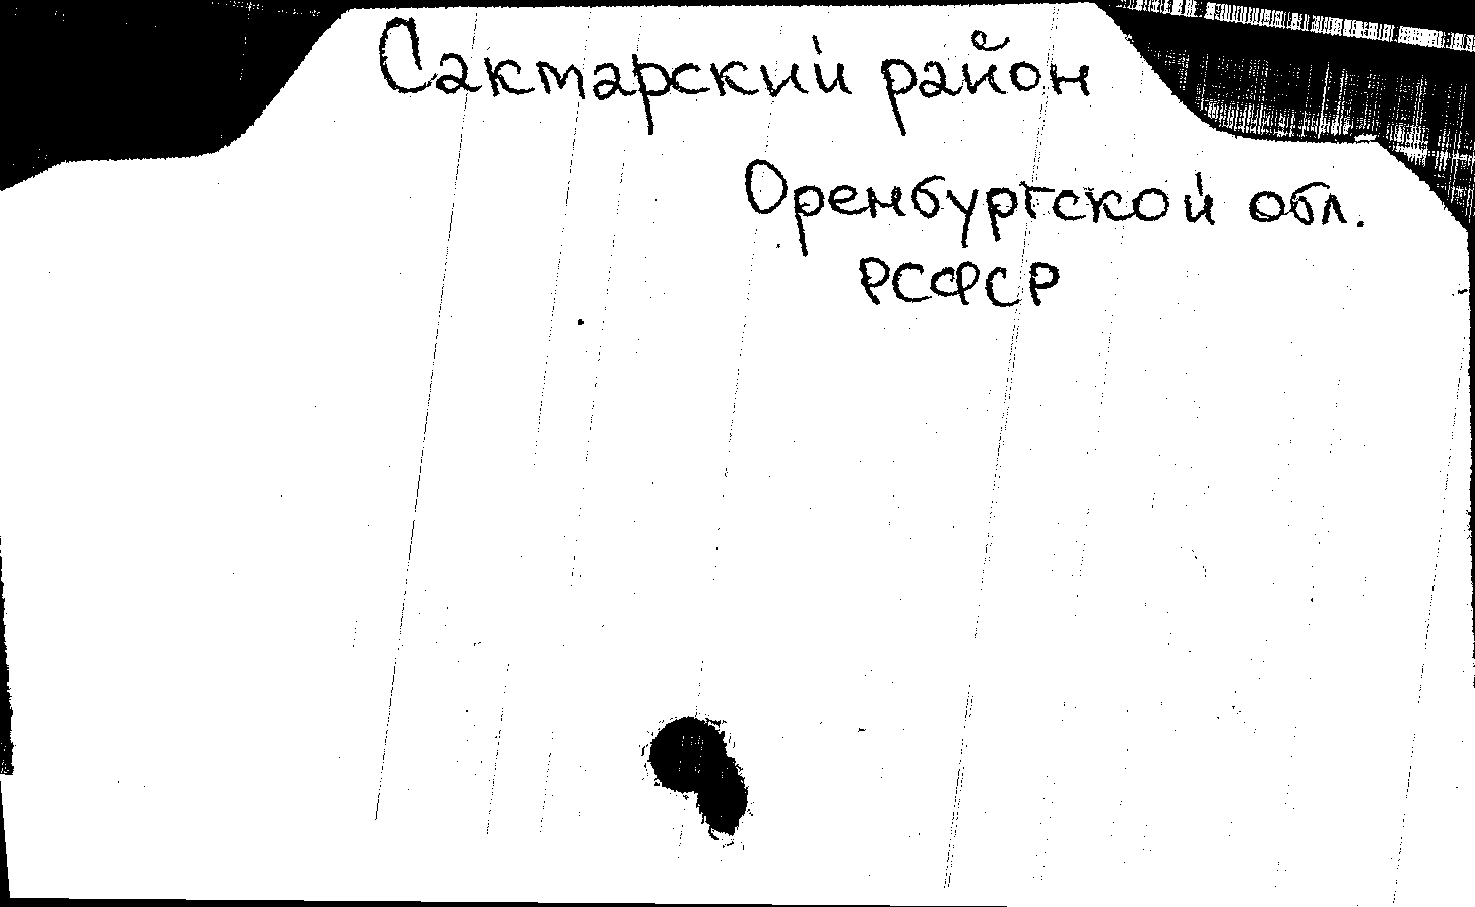 Сактарский район
Оренбургской обл.
РСФСР